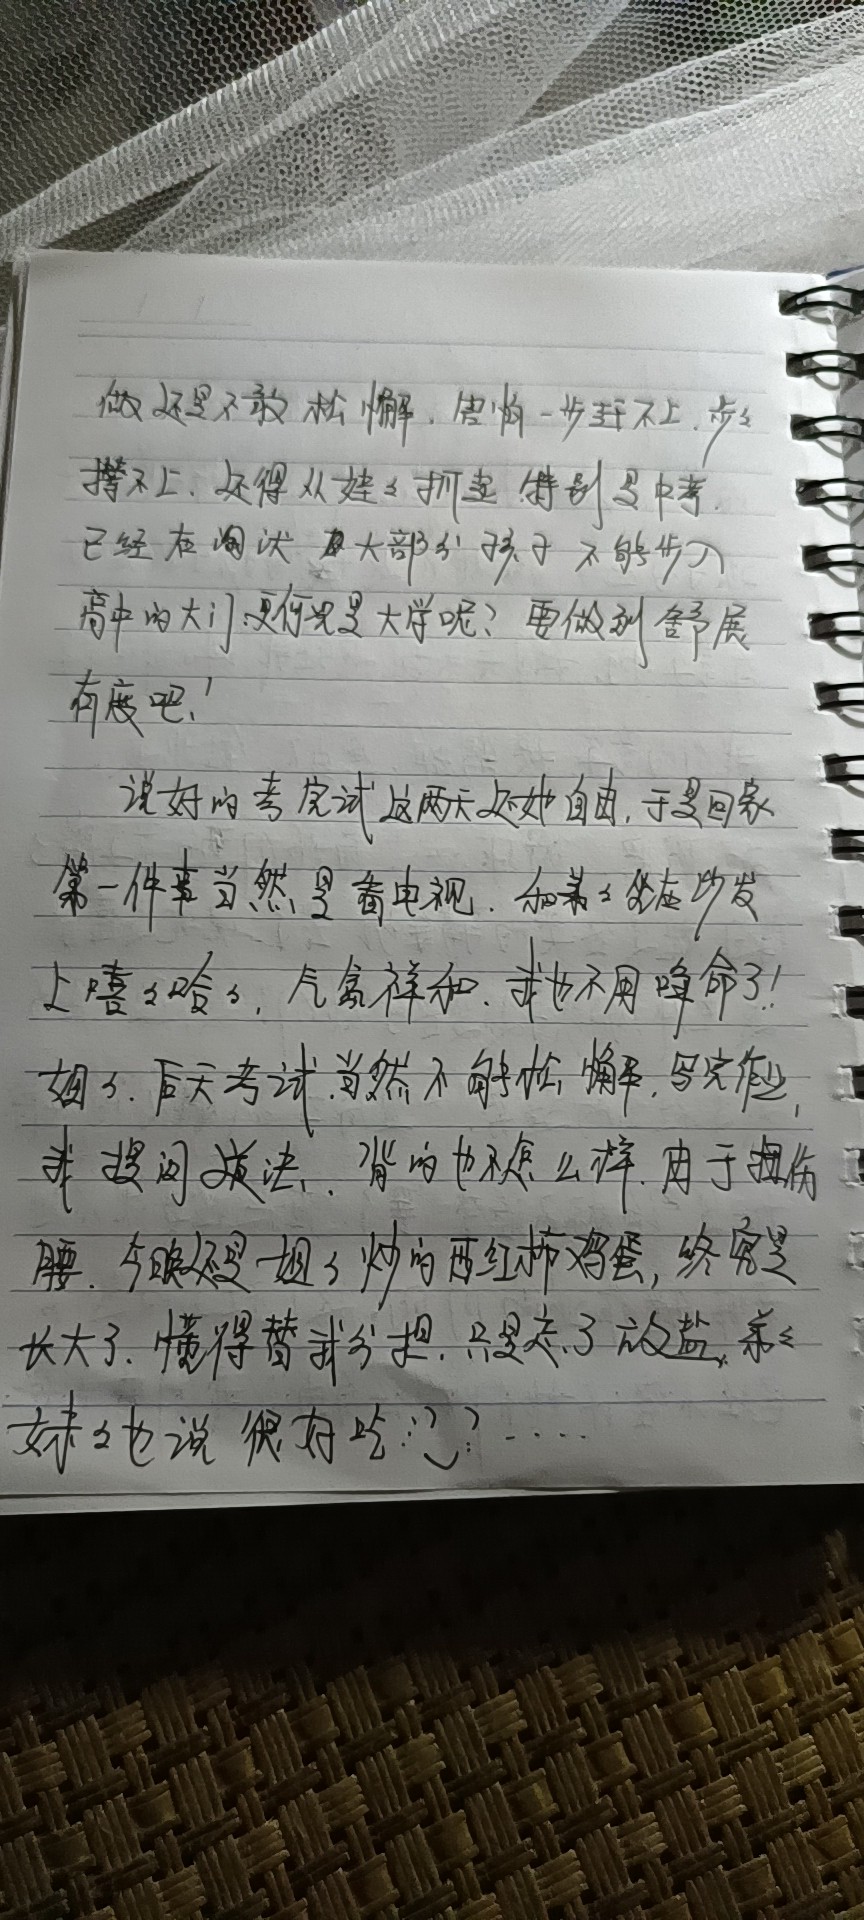 做还是不敢松懈，害怕一步赶不上，步々
撵不上，还得从娃々抓起，特别是中考，
已经在淘汰大部分孩子不能步入
高中的大门，更何况是大学呢？要做到舒展
有度吧！
说好的考完试这两天还她自由，于是回家
第一件事当然是看电视，和弟々坐在沙发
上嘻々哈々，气氛祥和，我也不用嚎命了！
姐々，后天考试，当然不能松懈，写完作业，
我提问道法，背的也不怎么样，由于扭伤
腰，今晚还是姐々炒的西红柿鸡蛋，终究是
长大了，懂得替我分担，只是忘了放盐，弟々
妹々也说很好吃！？……